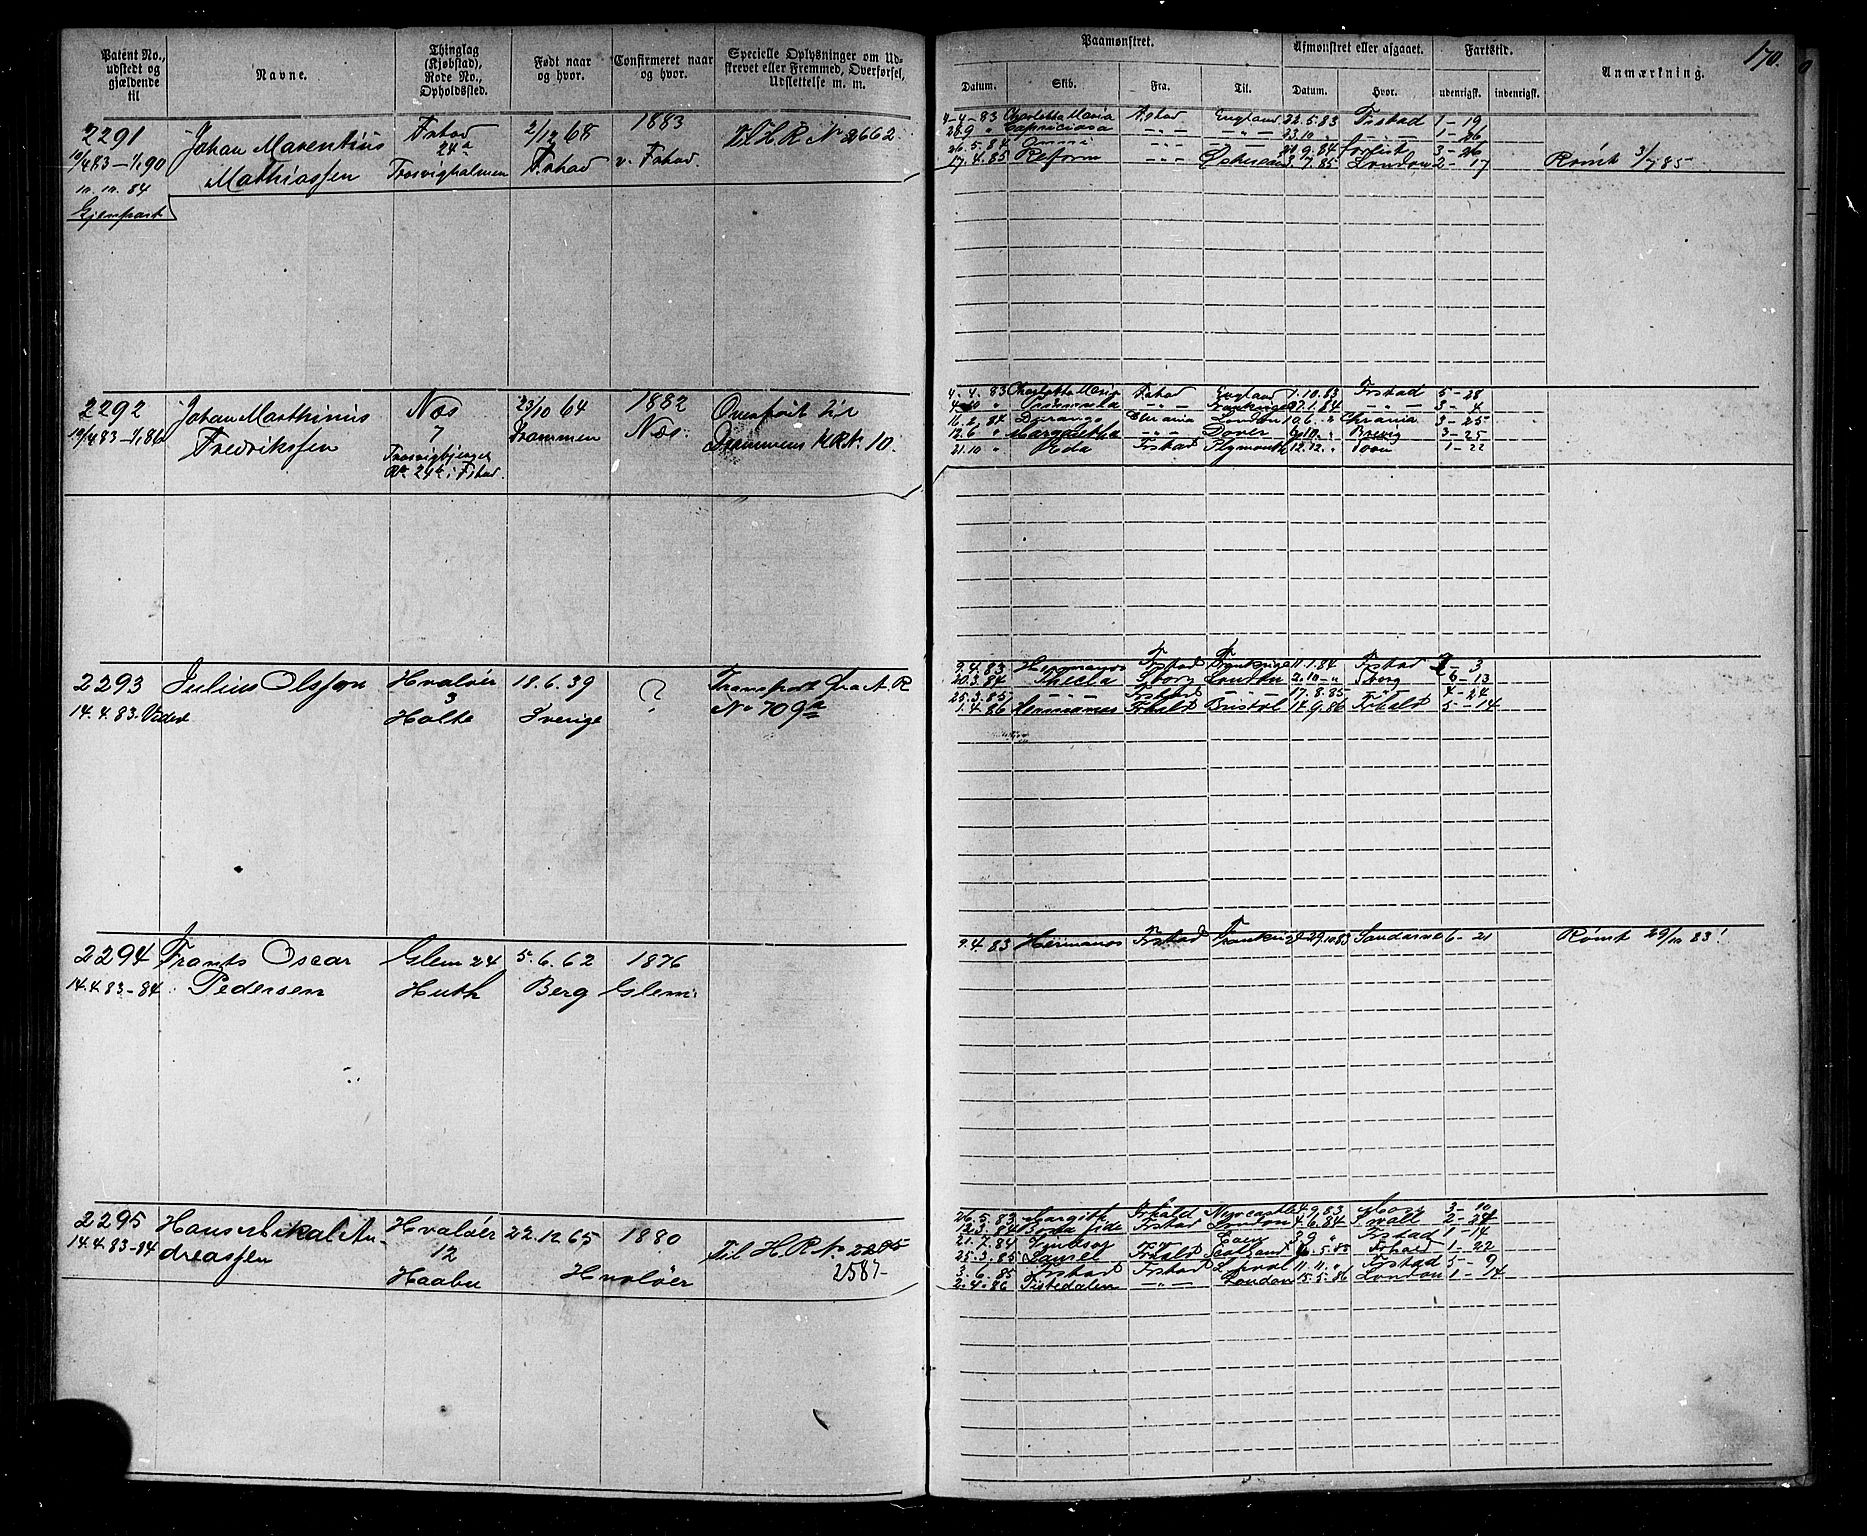 170.
Patent No., udstedt og gjældende til
Navne.
Thinglag (Kjøbstad), Rode No., Opholdssted.
Født naar og hvor.
Confirmeret naar og hvor.
Specielle Oplysninger om Udskrevet eller Fremmed, Overførsel, Udslettelse m. m.
Paamønstret.
Afmønstret eller afgaaet.
Fartstid.
Anmærkning.
Datum. Skib. Fra. Til. Datum. Hvor. udenrigsk. indenrigsk.
2291 Johan Marentius Fstad 2/12 68 1883 Til H. R. No 2662
10/4 83 – 1/1 90 Mathiassen 24a Fstad v. Fstad
Trosvigholmen
Gjenpart
4-4-83 Charlotte Maria Fstad England 22.5.83 Frstad 1-19
28.9 " Capriciosa -"- -"- 23.10 " -"- 1-26
26.5.84 -"- 21.9.84 3-26
17.4.85 Reform -"- 3.7.85 London 2-17 Rømt 3/7 85
2292 Johan Marthinius Næs 23/10 64 1882 Overført til
10/4 83 – 1/1 86 Fredriksen 7 Drammen Næs Drammens HR No. 10.
Trosvigbjerget
No 24a i Fstad
4.4.83 Charlotte Maria Fstad England 7.10.83 Frstad 5-28
-"- 1.84 -"- 3-4
16.2.84 Durango Chrania London 10.6. " Chrania 3-25
12.6 " Margaretha -"- Dover 6.10. " Brevig 3-25
21.10 " Ada Frstad Plymouth 12.12. " 1-22
2293 Julius Olssen Hvaløer 18.6.39 ? Transport fra A. R
14.4.83. 3 Sverige No 709a
Holte
9.4.83 Hermanos Frstad Frankrige 11.1.84 Frstad 9-3
20.3.84 Thecla Sborg London 2.10-" Sborg 6-13
25.3.85 -"- Frstad -"- 17.8.85 -"- 4-24
1.4.86 Hermanos Frhald Bristol 14.9.86 Frhald 5-14
2294 Frants Oscar Glem 24 5.6.62 1876
14.4.83-84 Pedersen Huth Berg Glem
9.4.83 Hermanos Frstad Frankrig 29.10.83 Sandarne 6-21 Rømt 29/10 83!
2295 Hans Mikal An- Hvaløer 22.12.65 1880 Til H. R. No 2205
14.4.83-84 dreassen 12 Hvaløer 2587
Haabu
26.5.83 Margith Frhald Newcastle 4.9.83 Mosg 3-10
12.3.84 Bona fide Frstad London 4.6.84 2-24
21.7.84 Caen 3.9 " Frstad 1-14
25.3.85 Laurel Frhald Scotland 16.5.85 Frhald 1-22
3.6.85 Frstad Frstad L.pool 11.11. " Frstad 5-9
2.4.86 Tistedalen -"- London 15.5.86 London 1-14